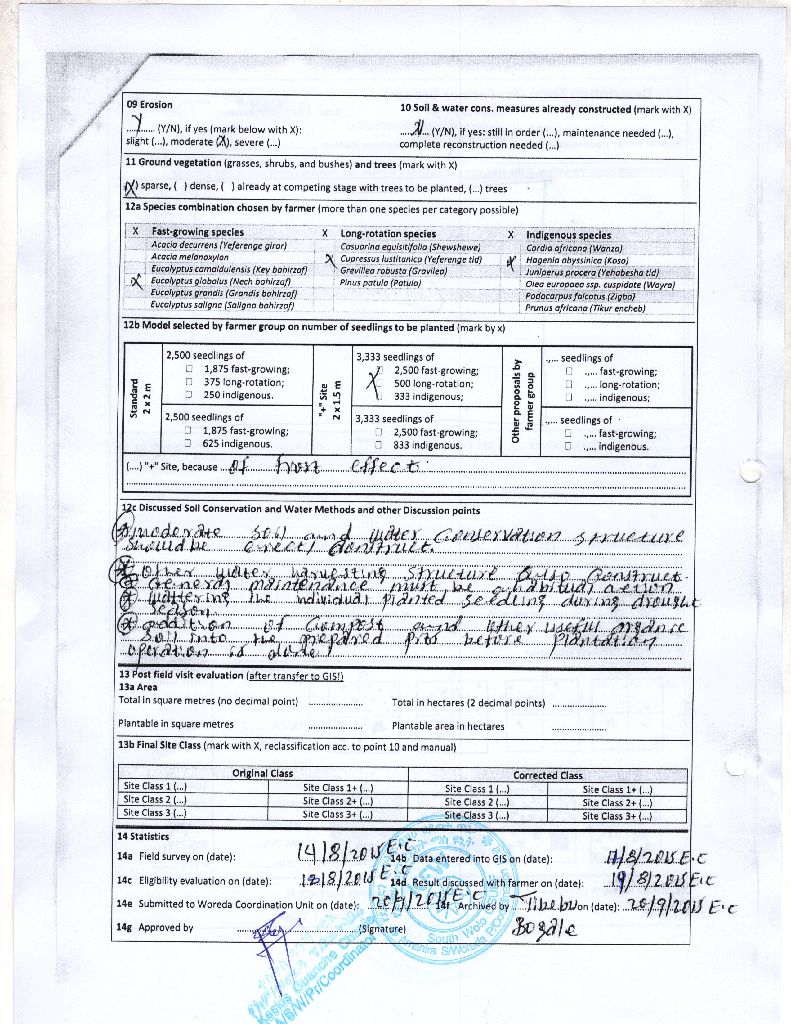 09 Erosion
10 Soil & water cons. measures already constructed (mark with X)
..Y..... (Y/N), if yes (mark below with X):
....N... (Y/N), if yes: still in order (...), maintenance needed (...),
slight (...), moderate (X), severe (...)
complete reconstruction needed (...)
11 Ground vegetation (grasses, shrubs, and bushes) and trees (mark with X)
(X) sparse, ( ) dense, ( ) already at competing stage with trees to be planted, (...) trees
12a Species combination chosen by farmer (more than one species per category possible)
X Fast-growing species X Long-rotation species X Indigenous species
Acacia decurrens (Yeferenge girar) Casuarina equisitifolia (Shewshewe) Cordia africana (Wanza)
Acacia melanoxylon X Cupressus lustitanica (Yeferenge tid) X Hagenia abyssinica (Koso)
Eucalyptus camaldulensis (Key bahirzaf) Grevillea robusta (Gravilea) Juniperus procera (Yehabesha tid)
X Eucalyptus globalus (Nech bahirzaf) Pinus patula (Patula) Olea europaea ssp. cuspidate (Wayra)
Eucalyptus grandis (Grandis bahirzaf) Podocarpus falcatus (Zigba)
Eucalyptus saligna (Saligna bahirzaf) Prunus africana (Tikur encheb)
12b Model selected by farmer group on number of seedlings to be planted (mark by x)
Standard
2 x 2 m
2,500 seedlings of
☐ 1,875 fast-growing;
☐ 375 long-rotation;
☐ 250 indigenous.
2,500 seedlings of
☐ 1,875 fast-growing;
☐ 625 indigenous.
"+" Site
2 x 1.5 m
3,333 seedlings of
X 2,500 fast-growing;
500 long-rotation;
☐ 333 indigenous;
3,333 seedlings of
☐ 2,500 fast-growing;
☐ 833 indigenous.
Other proposals by
farmer group
.,... seedlings of
☐ .,... fast-growing;
☐ .,... long-rotation;
☐ .,... indigenous;
.,... seedlings of
☐ .,... fast-growing;
☐ .,... indigenous.
(....) "+" Site, because of frost effect.
12c Discussed Soil Conservation and Water Methods and other Discussion points
moderate soil and water conservation structure
should be erect/ construct.
Other water harvesting structure also construct.
General maintenance must be a habitual action
wattering the individual planted seedling during drought
season.
addition of compost and other useful organic
soil into the prepared pits before plantation
operation is done!
13 Post field visit evaluation (after transfer to GIS!)
13a Area
Total in square metres (no decimal point) .................... Total in hectares (2 decimal points) ....................
Plantable in square metres .................... Plantable area in hectares ....................
13b Final Site Class (mark with X, reclassification acc. to point 10 and manual)
Original Class Corrected Class
Site Class 1 (...) Site Class 1+ (...) Site Class 1 (...) Site Class 1+ (...)
Site Class 2 (...) Site Class 2+ (...) Site Class 2 (...) Site Class 2+ (...)
Site Class 3 (...) Site Class 3+ (...) Site Class 3 (...) Site Class 3+ (...)
14 Statistics
14a Field survey on (date): 14/8/2015 E.C 14b Data entered into GIS on (date): 17/8/2015 E.C
14c Eligibility evaluation on (date): 18/8/2015 E.C 14d Result discussed with farmer on (date): 19/8/2015 E.C
14e Submitted to Woreda Coordination Unit on (date): 20/9/2015 E.C 14f Archived by Tibebu on (date): 20/9/2015 E.C
14g Approved by .................... (Signature) Bogale
South Wollo
Amhara S/Woreda
A/S/W/Pr/Coordinator